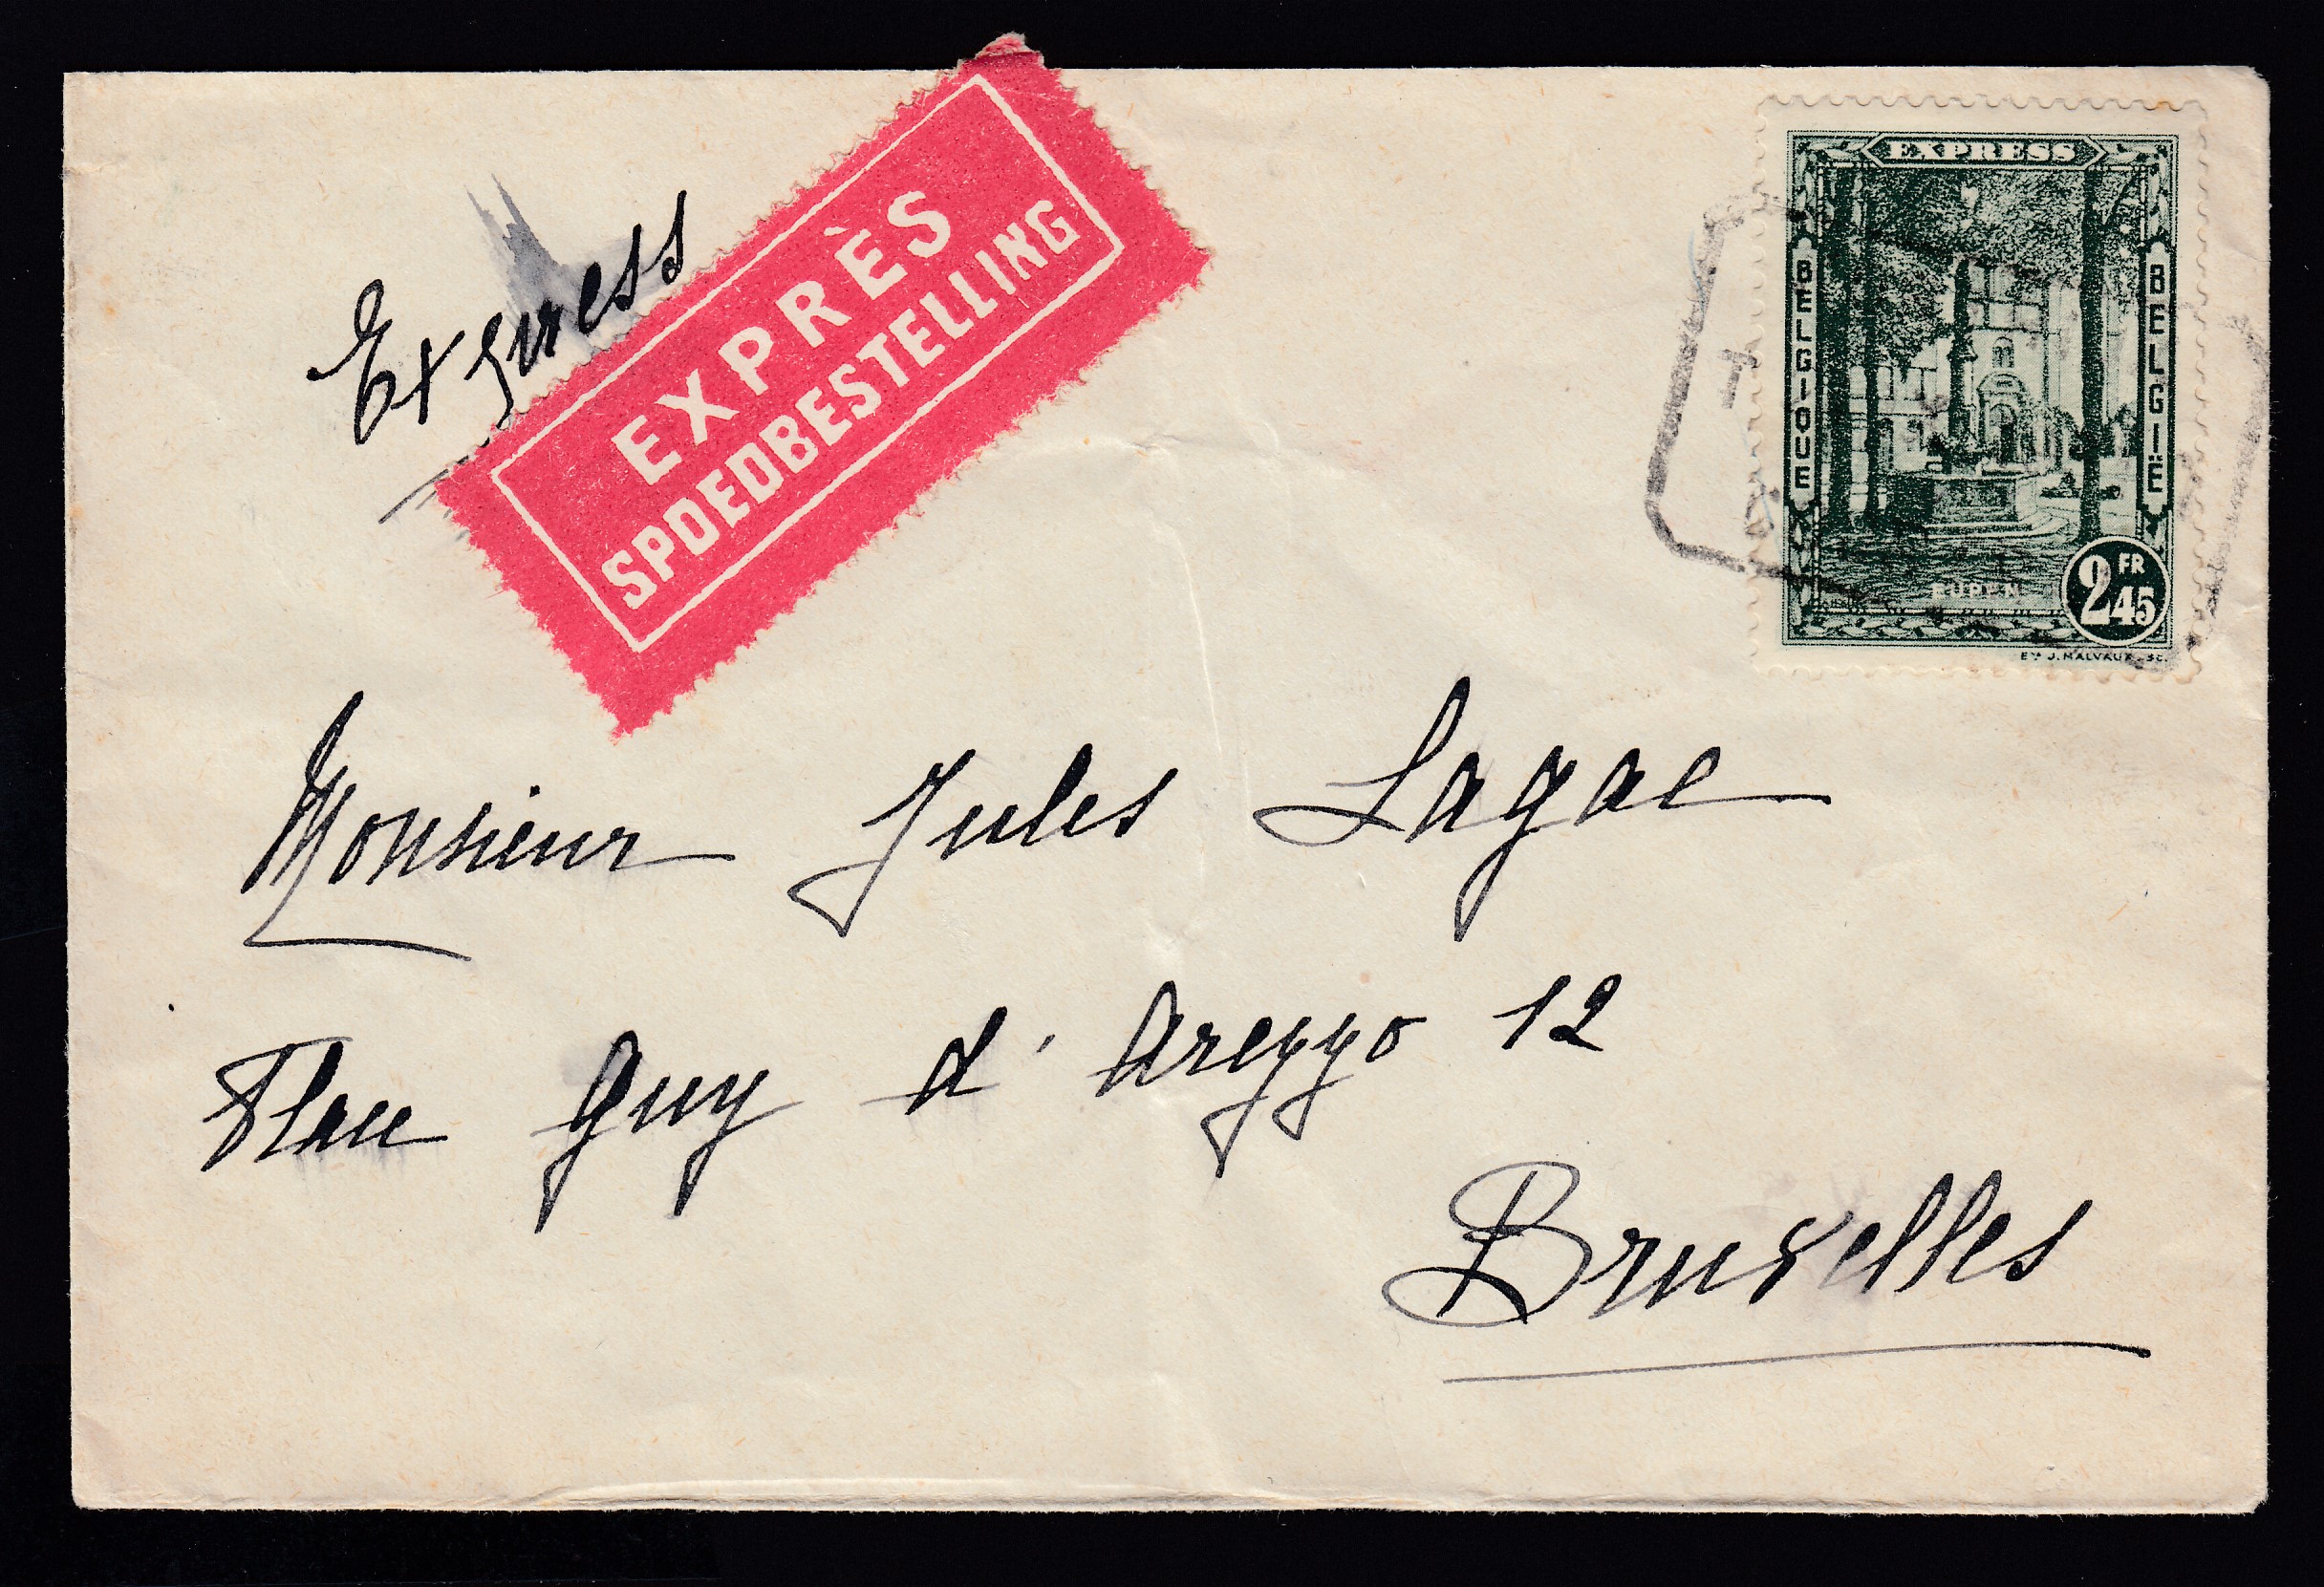 Express
EXPRÈS
SPOEDBESTELLING
EXPRESS
BELGIQUE
BELGIË
EUPEN
2FR45
ETS J. MALVAUX SC.
Monsieur Jules Lagae
Place Guy d'Arezzo 12
Bruxelles